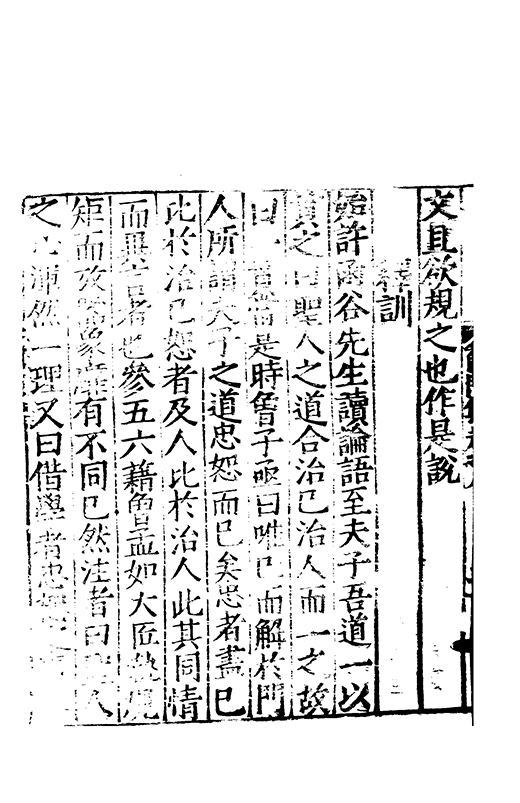 文且欲規之也作是說
釋訓
始許函谷先生讀論語至夫子吾道一以
貫之曰聖人之道合治己治人而一之故
曰一貫當是時曾子亟曰唯已而解於門
人所謂夫子之道忠恕而已矣忠者盡己
比於治己恕者及人比於治人此其同情
而異言者也參五六藉曾孟如大匠執規
矩而攻器象雖有不同已然注者曰聖人
之心渾然一理又曰借學者忠